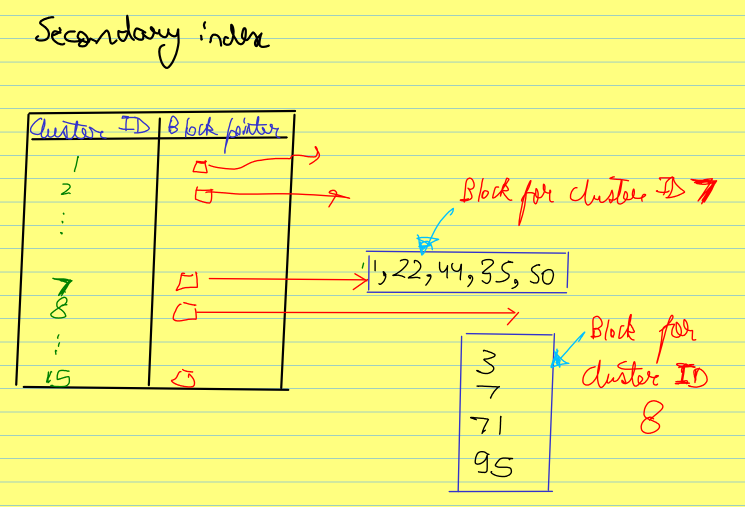 Secondary index
Cluster ID Block pointer
1
2
⋮
7
8
⋮
15
Block for cluster ID 7
1, 22, 44, 35, 50
3
7
71
95
Block for
cluster ID
8